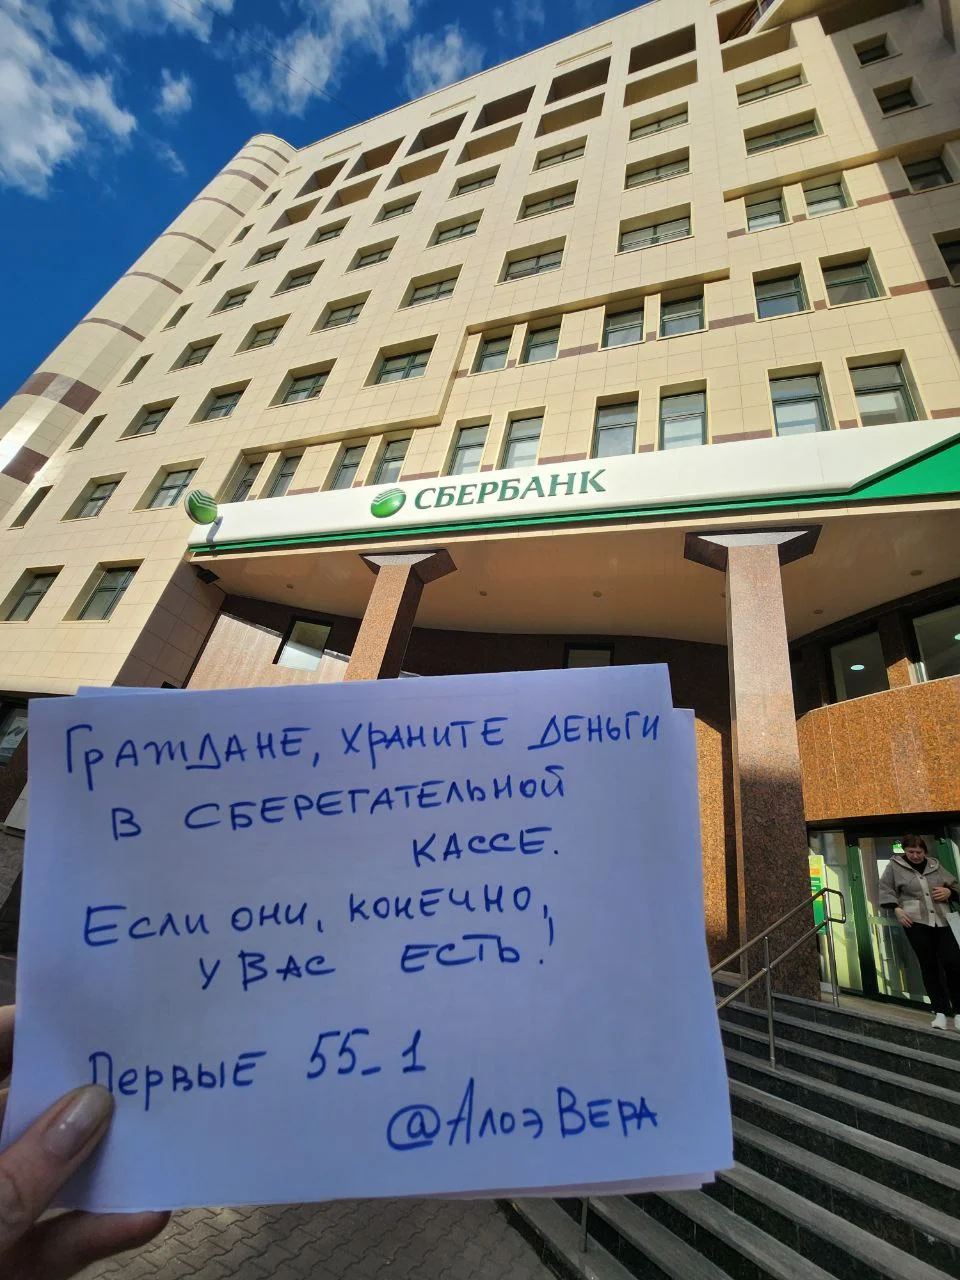 СБЕРБАНК
Граждане, храните деньги
в сберегательной
кассе.
Если они, конечно,
у вас есть!
Первые 55_1
@АлоэВера